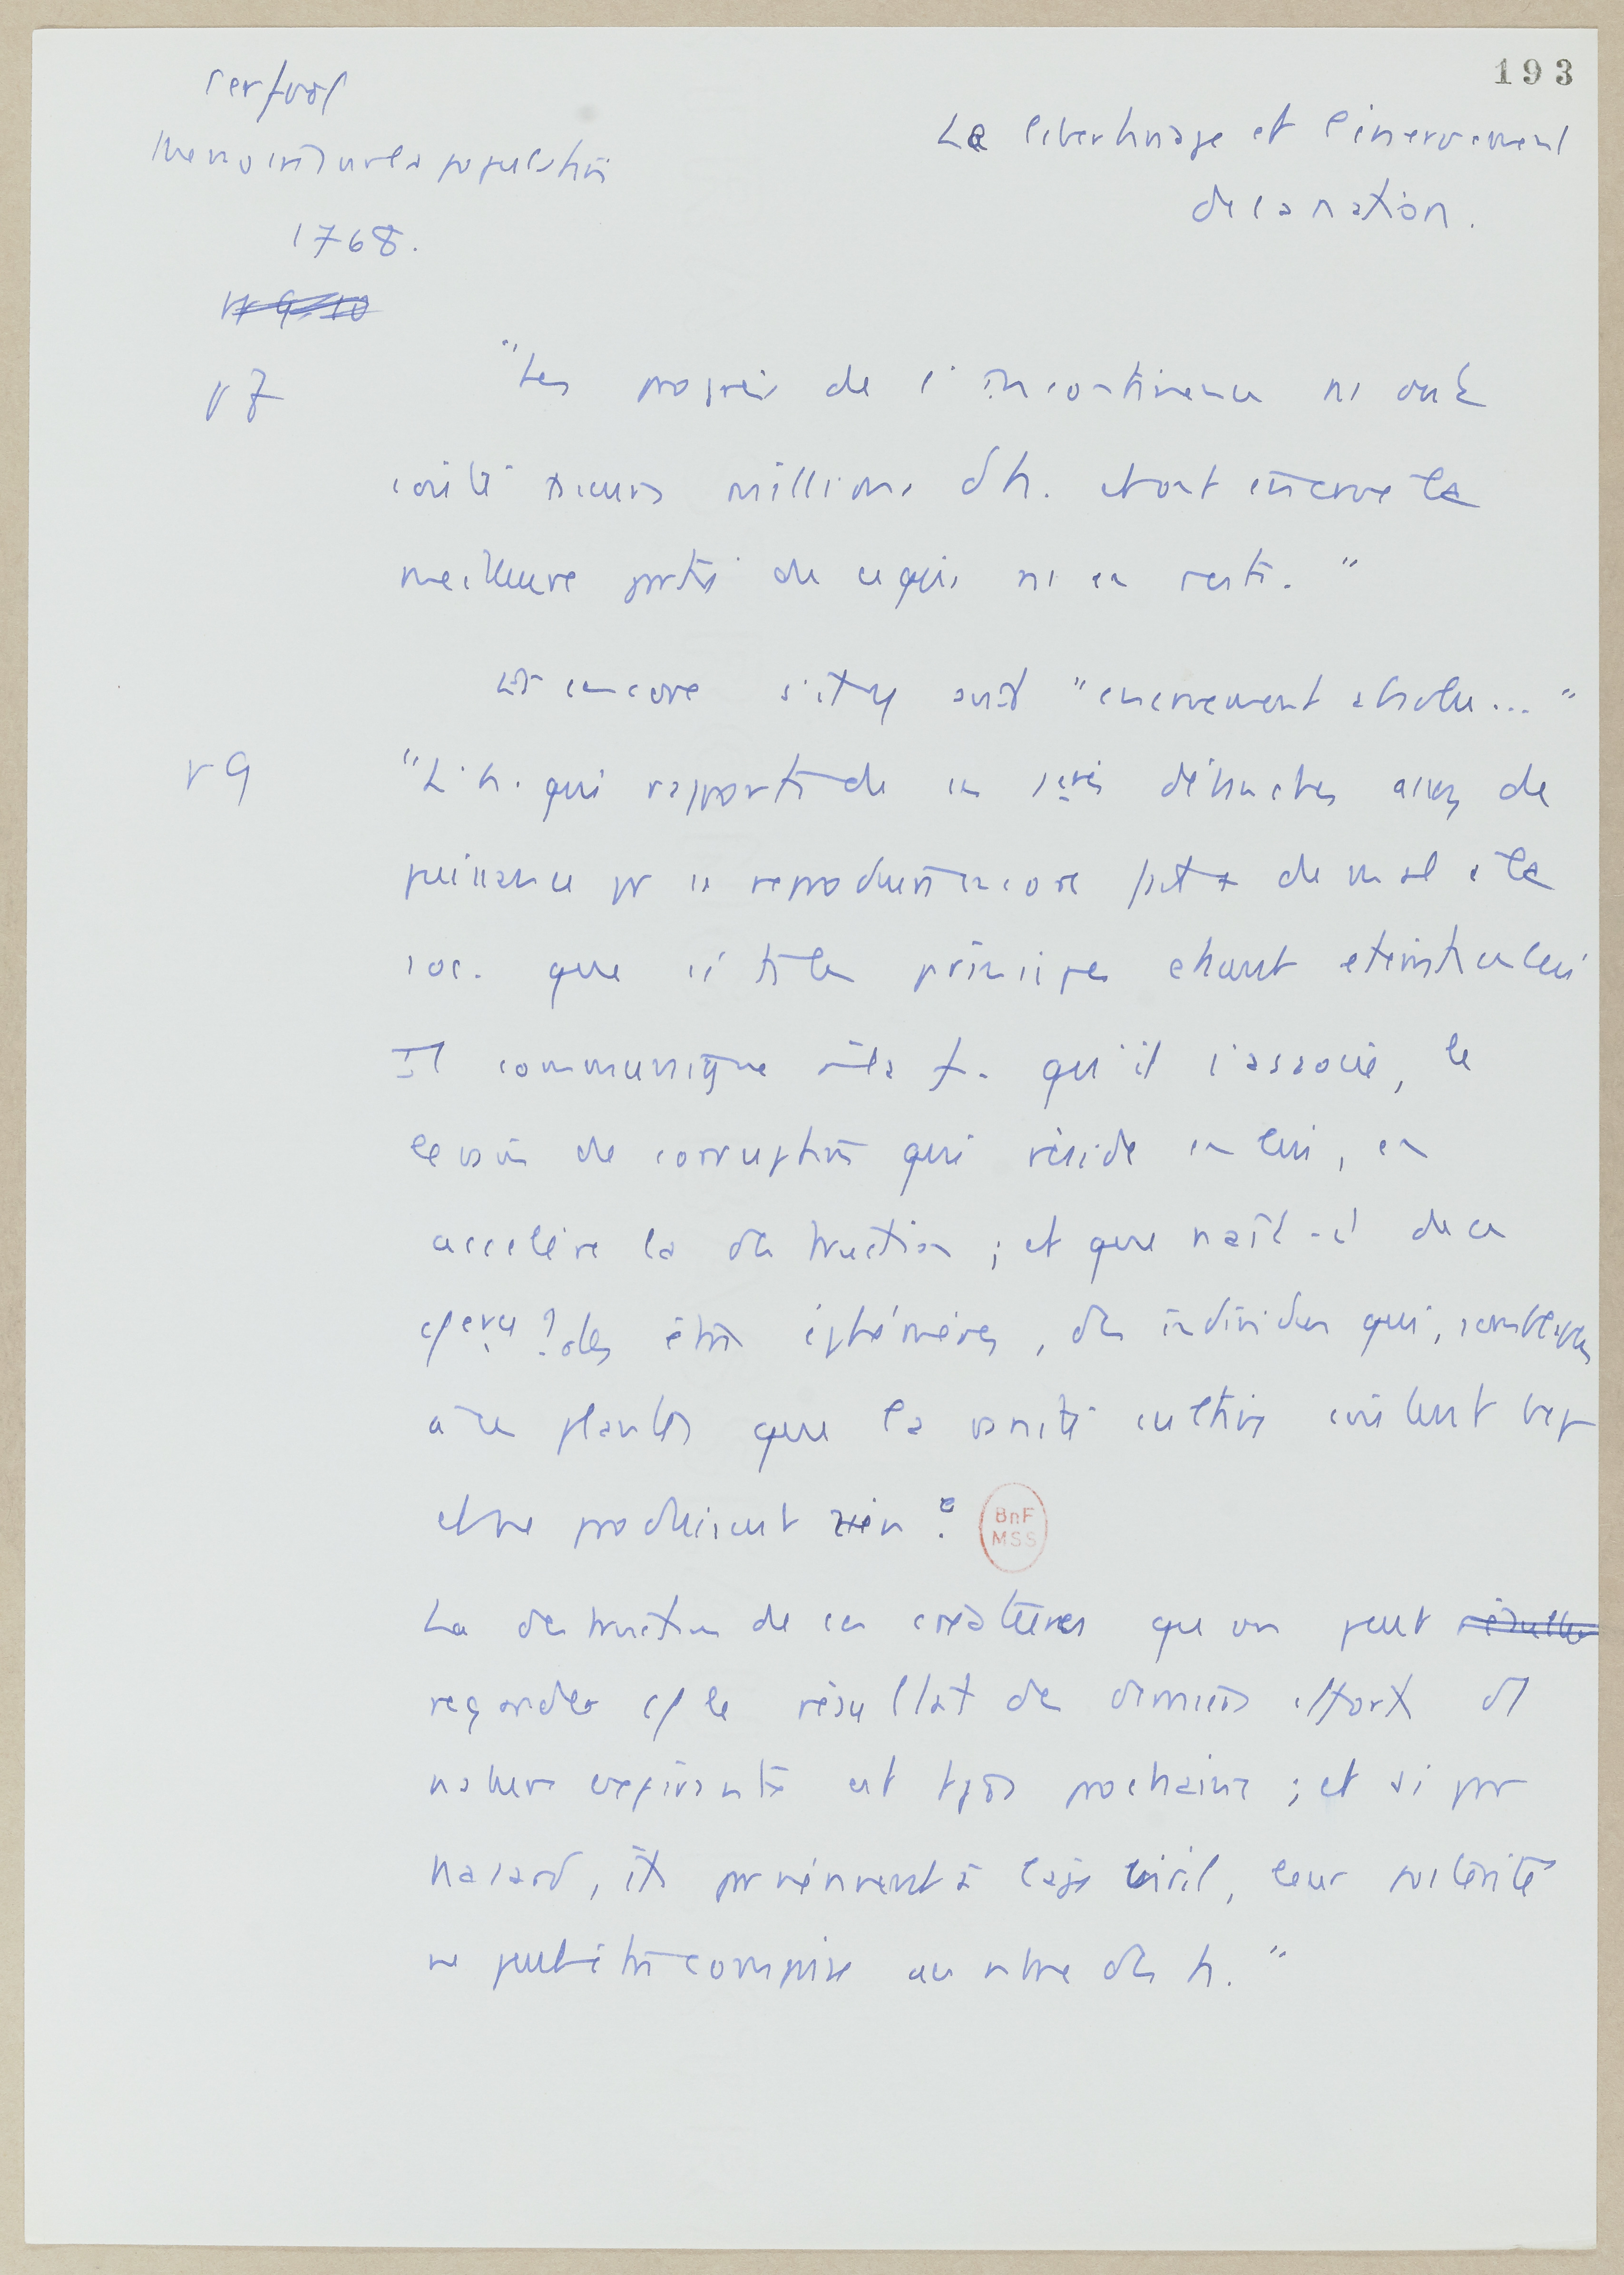 193
Cerfvol
Memoire sur la population
1768.
Le libertinage et l'énervement
de la nation.
p 9-10
p 7
"Les progrès de l'incontinence ns ont
coûté des millions d'h. et ont énervé la
meilleure partie de ce qui ns en reste."
"enervement absolu..."
p 9
"L'h. qui rapporte de ses 1eres débauches assez de
puissance pr se reproduire encore fait + de mal à la
soc. que si ts les principes étaient eteints en lui
Il communique à la f. qu'il s'associe, le
levain de corruption qui réside en lui, en
accelère la destruction ; et que naît-il de ce
commerce ? des êtres éphémères, des individus qui, semblables
à ces plantes que la vanité cultive coûtent bcp
et ne produisent rien ?
BnF
MSS
La destruction de ces créatures que on peut résulter
regarder c/ le résultat des derniers efforts d l
nature expirante est tjrs prochaine ; et si par
hasard, ils parviennent à l'age viril, leur
ne peut être comprise au nbre des h."